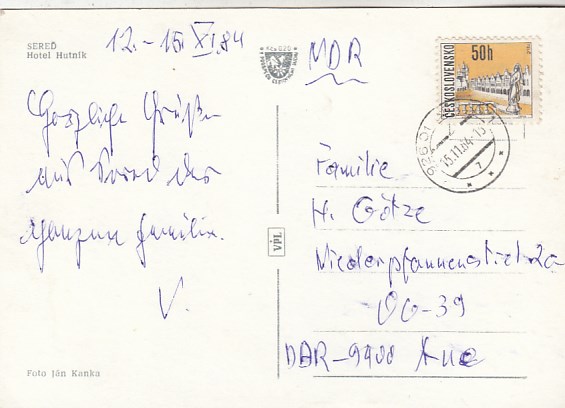 SEREĎ
Hotel Hutník
12.-15. XI. 84
Herzliche Grüße
aus Sered der
ganzen Familie.
V.
Foto Ján Kanka
VPL
NDR
ČESKOSLOVENSKO
50h
926 01
15.11.84-15
Familie
H. Götze
Niederpfannenstiel 2a
00-39
DDR-9400 Aue